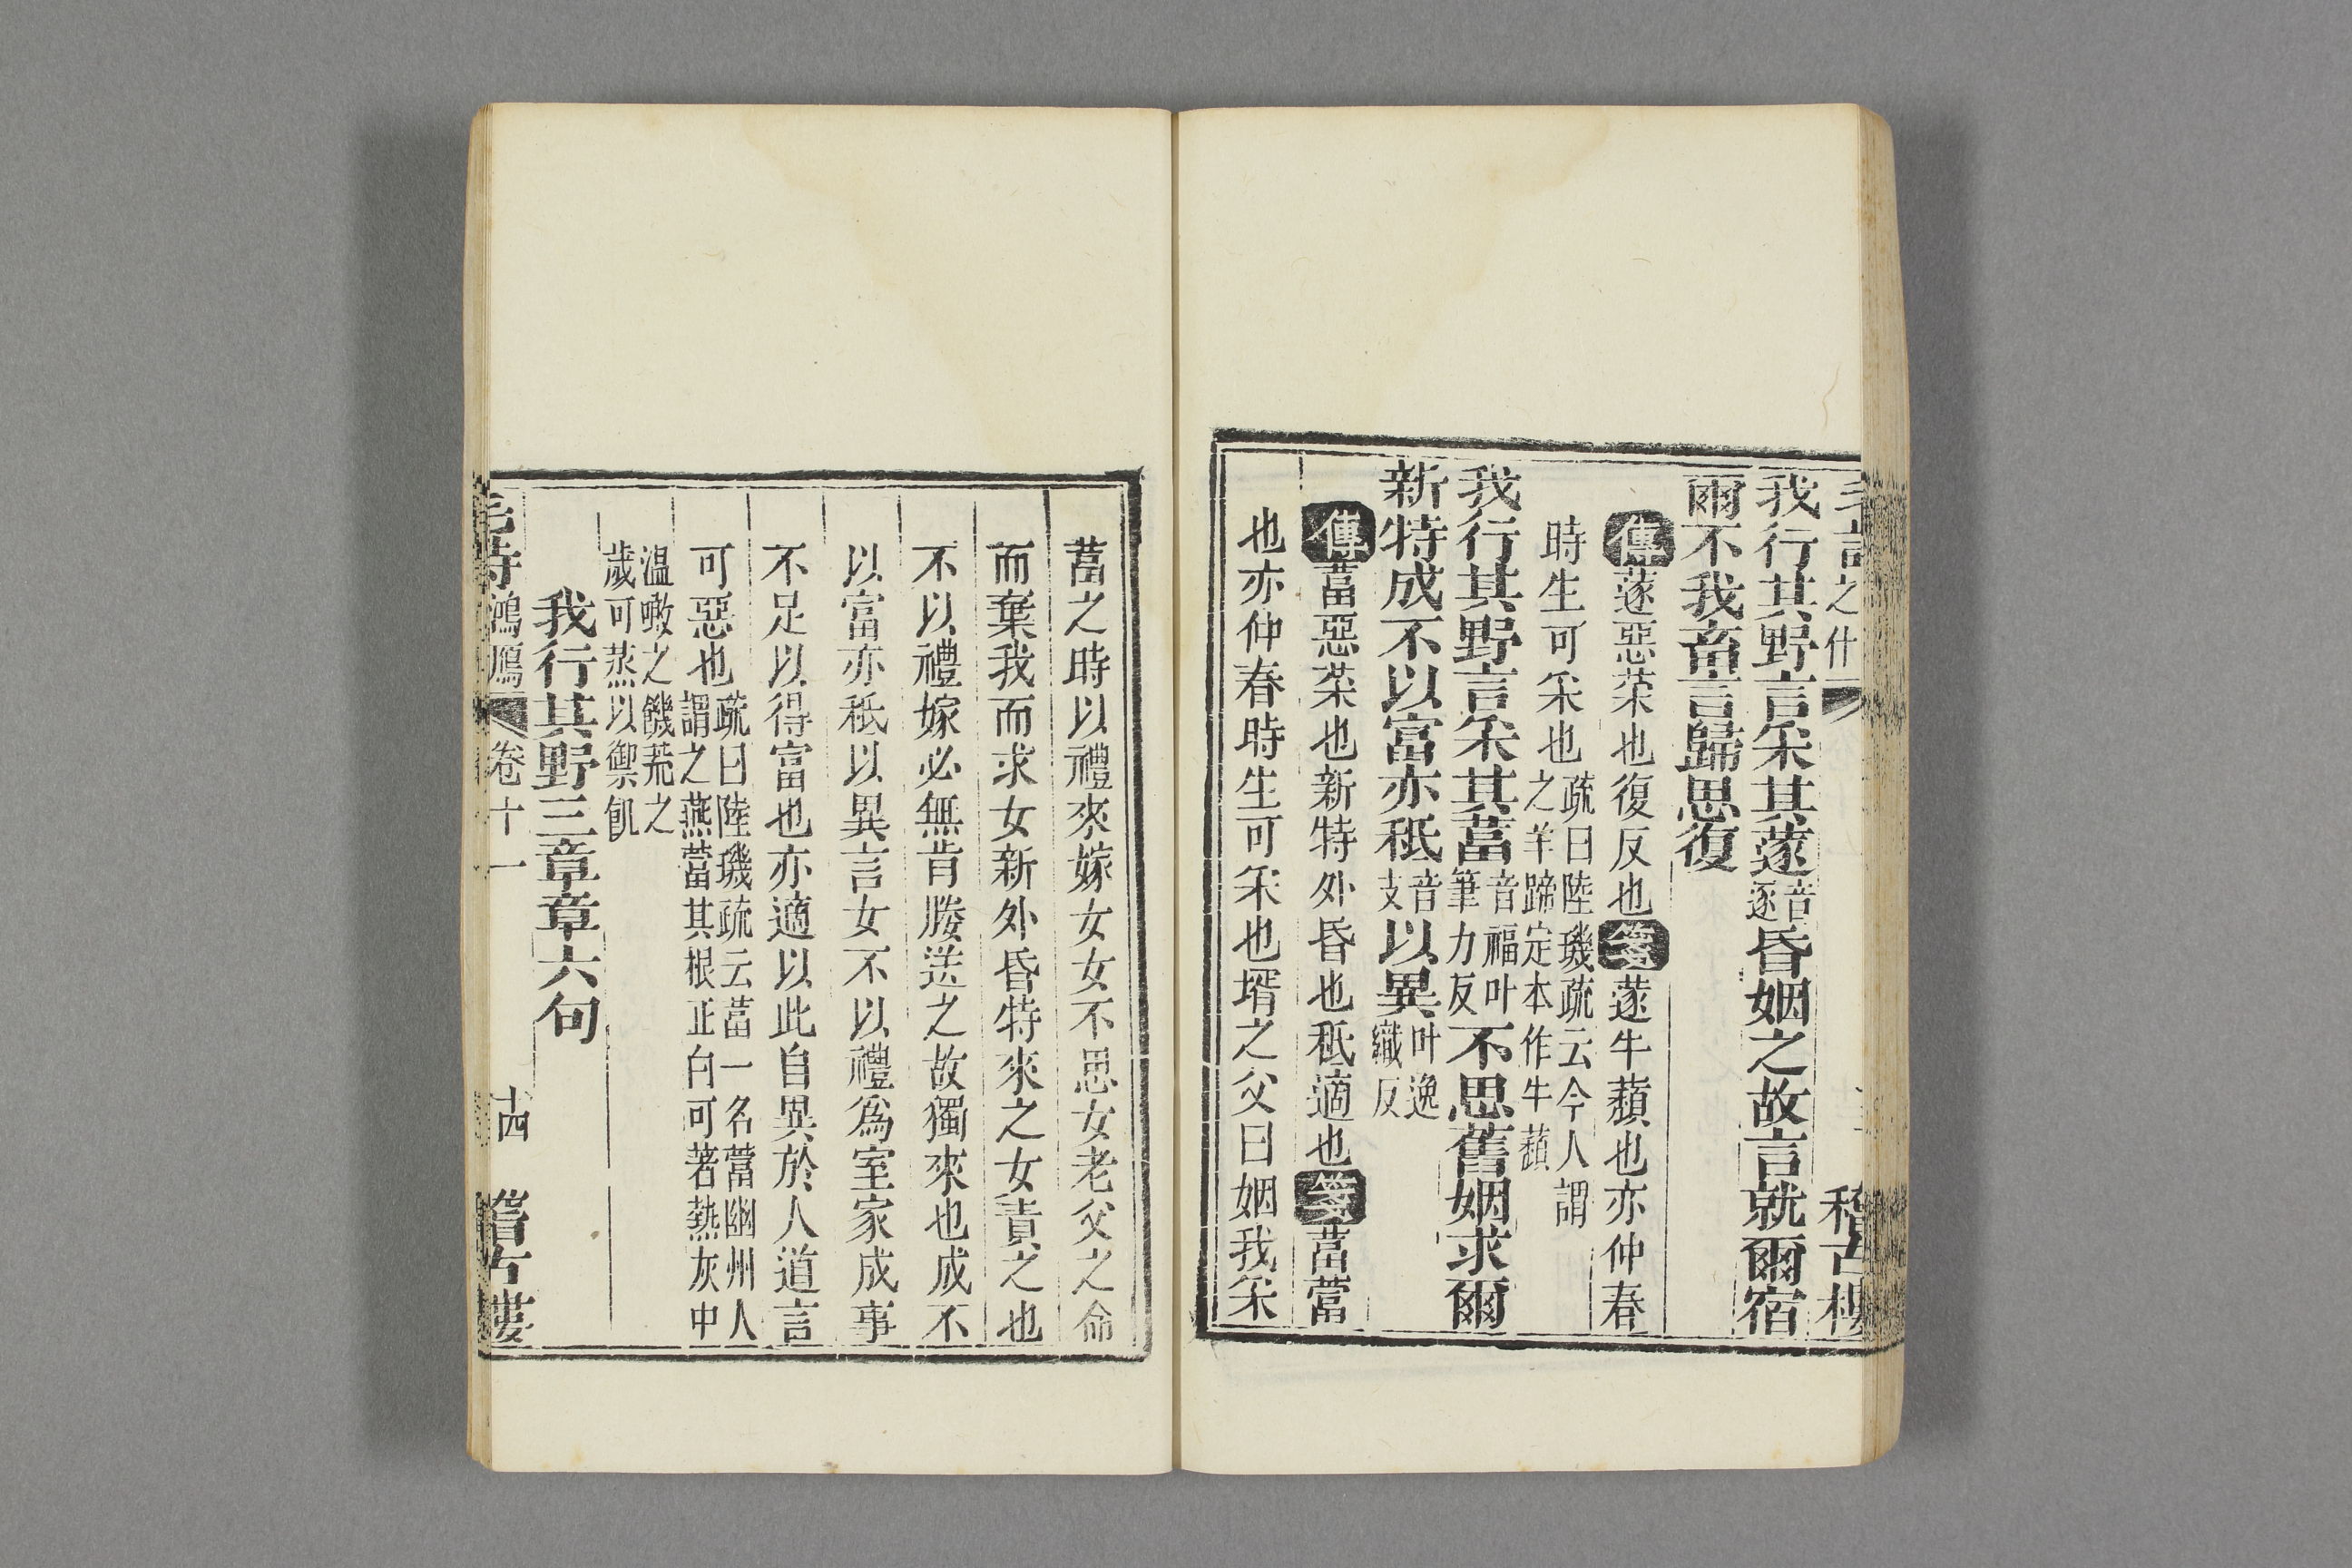 毛詩之什
稽古樓
我行其野言采其蓫音逐昏姻之故言就爾宿
爾不我畜言歸思復
傳蓫惡菜也復反也箋蓫牛蘈也亦仲春
時生可采也疏曰陸璣疏云今人謂
之羊蹄定本作牛蘈
我行其野言采其葍音福叶筆力反不思舊姻求爾
新特成不以富亦秖音支以異叶逸織反
傳葍惡菜也新特外昏也秖適也箋葍䔰
也亦仲春時生可采也壻之父曰姻我采
葍之時以禮來嫁女女不思女老父之命
而棄我而求女新外昏特來之女責之也
不以禮嫁必無肯媵送之故獨來也成不
以富亦秖以異言女不以禮爲室家成事
不足以得富也亦適以此自異於人道言
可惡也疏曰陸璣疏云葍一名䔰幽州人
謂之燕䔰其根正白可著熱灰中
温噉之饑荒之
歲可蒸以禦飢
我行其野三章章六句
毛詩 鴻鴈 卷十一
十四
稽古樓